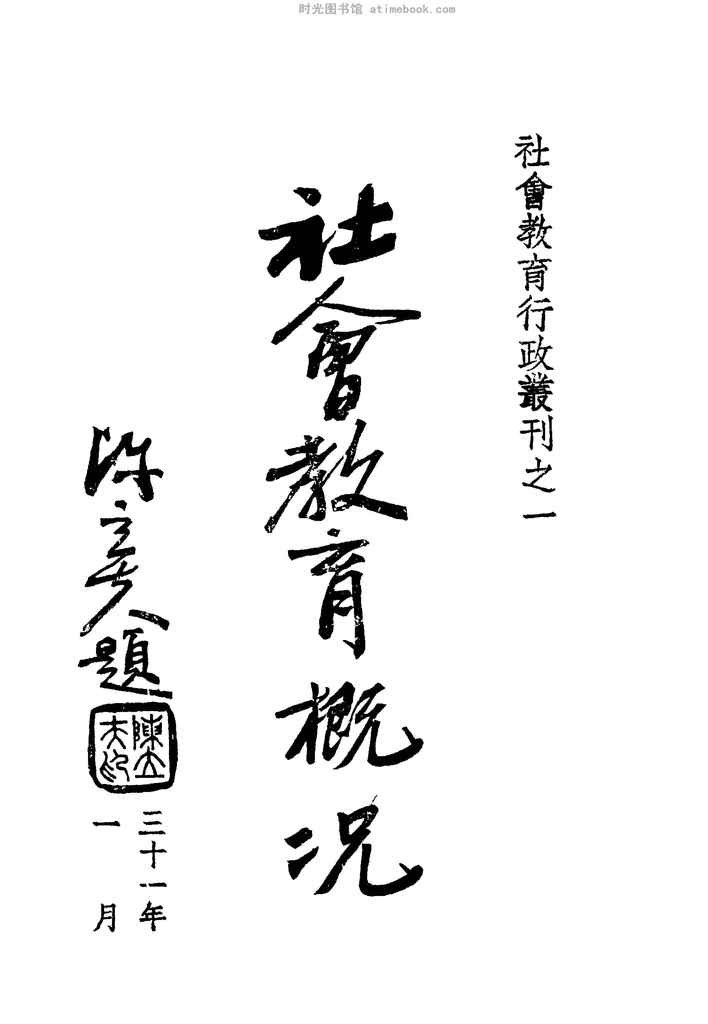 时光图书馆 atimebook.com
社會教育行政叢刊之一
社會教育概况
陈立夫題
陳立夫印
三十一年
一月